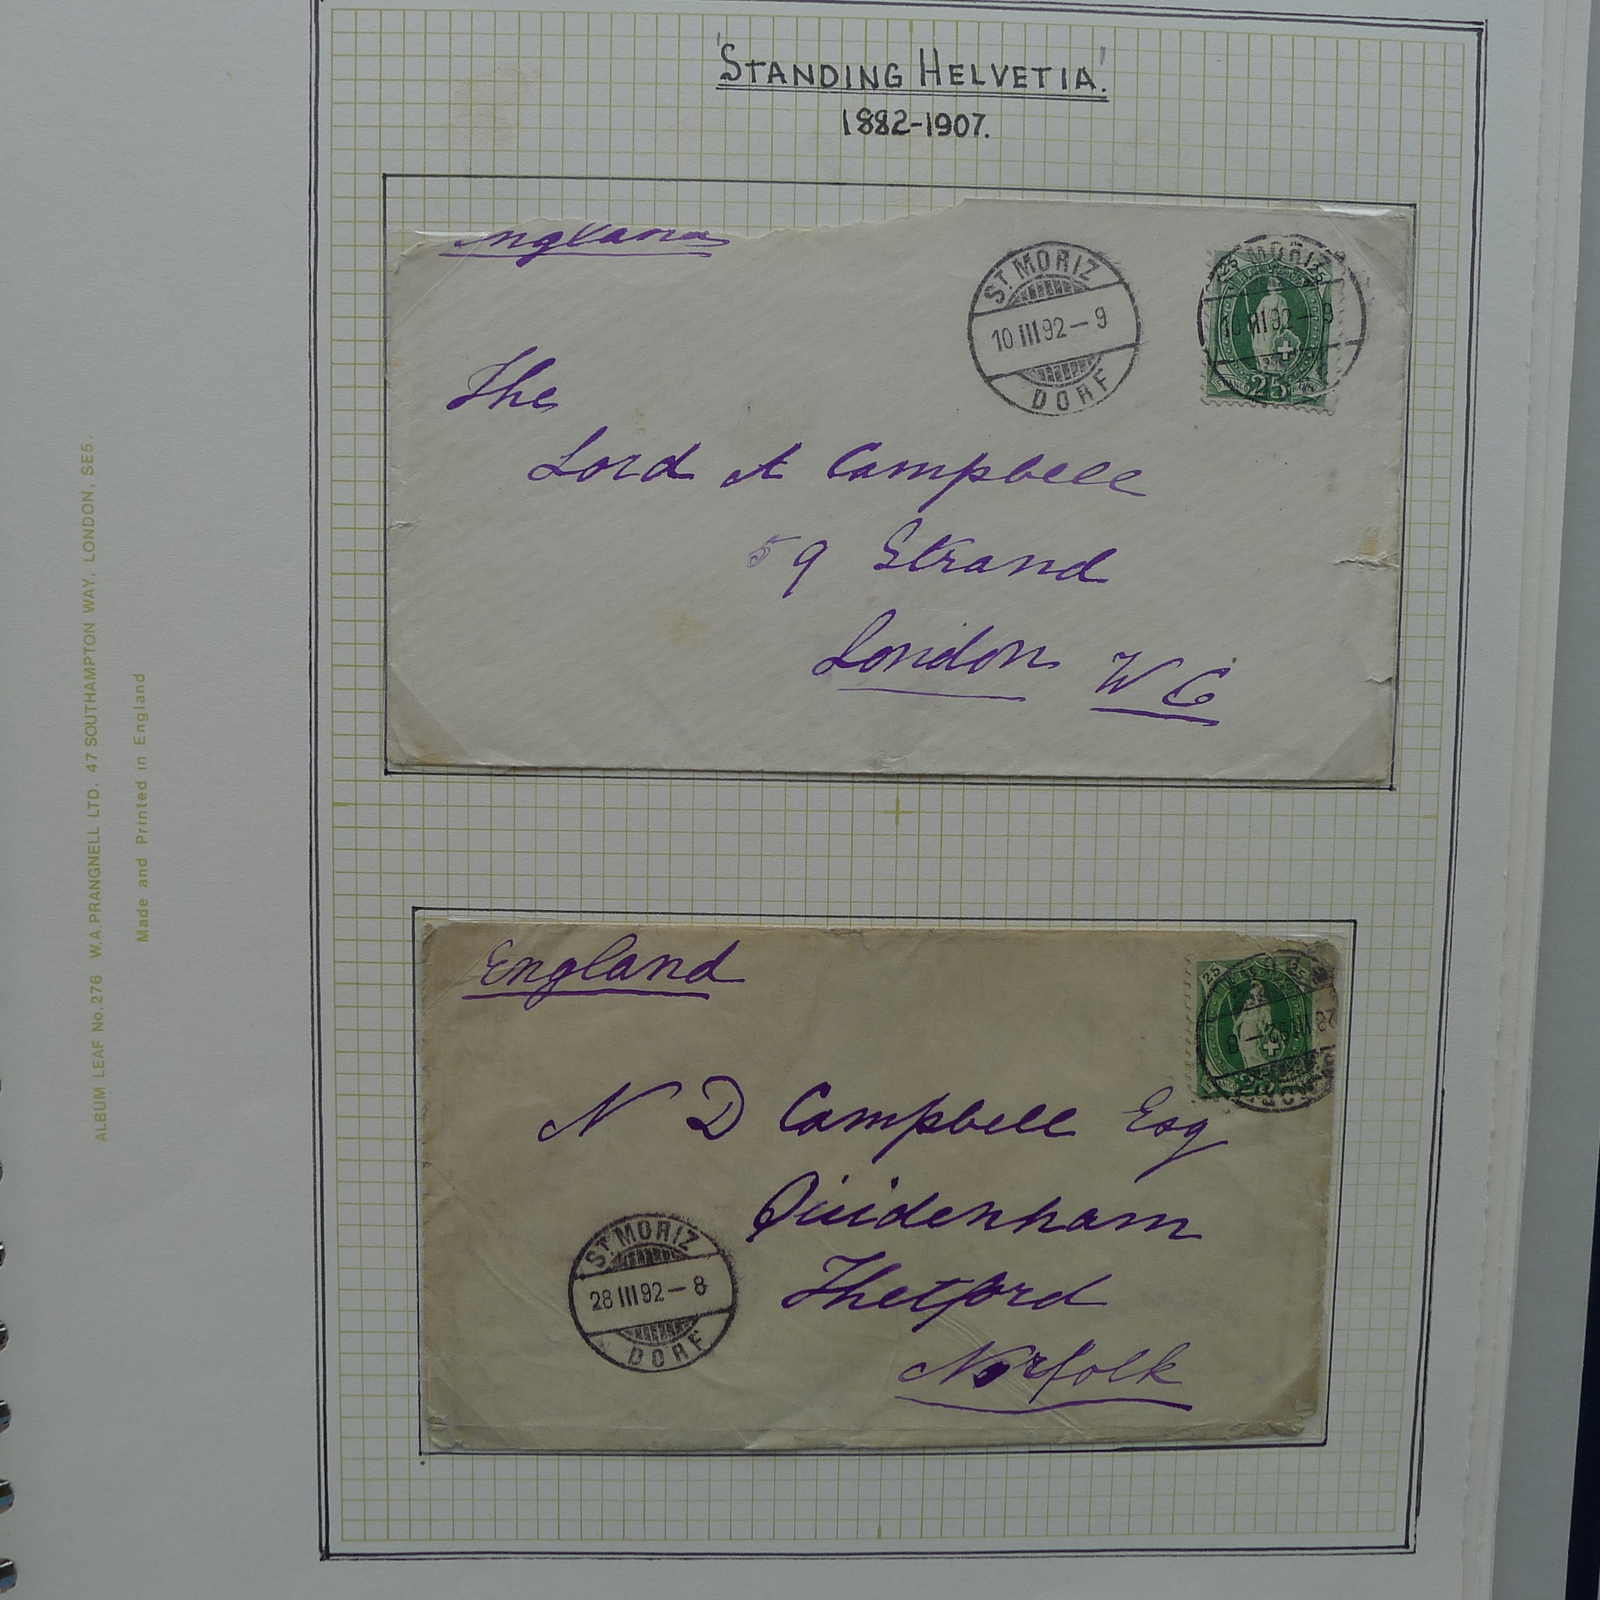 'STANDING HELVETIA'.
1882-1907.
England
ST. MORIZ
10 III 92 - 9
DORF
25 25
MORIZ
10 III 92 - 9
25
The
Lord A Campbell
59 Strand
London W C
England
25
28 III 92 - 8
N D Campbell Esq
Quidenham
Thetford
Norfolk
ST. MORIZ
28 III 92 - 8
DORF
ALBUM LEAF No. 276 W.A. PRANGNELL LTD. 47 SOUTHAMPTON WAY, LONDON, SE5.
Made and Printed in England